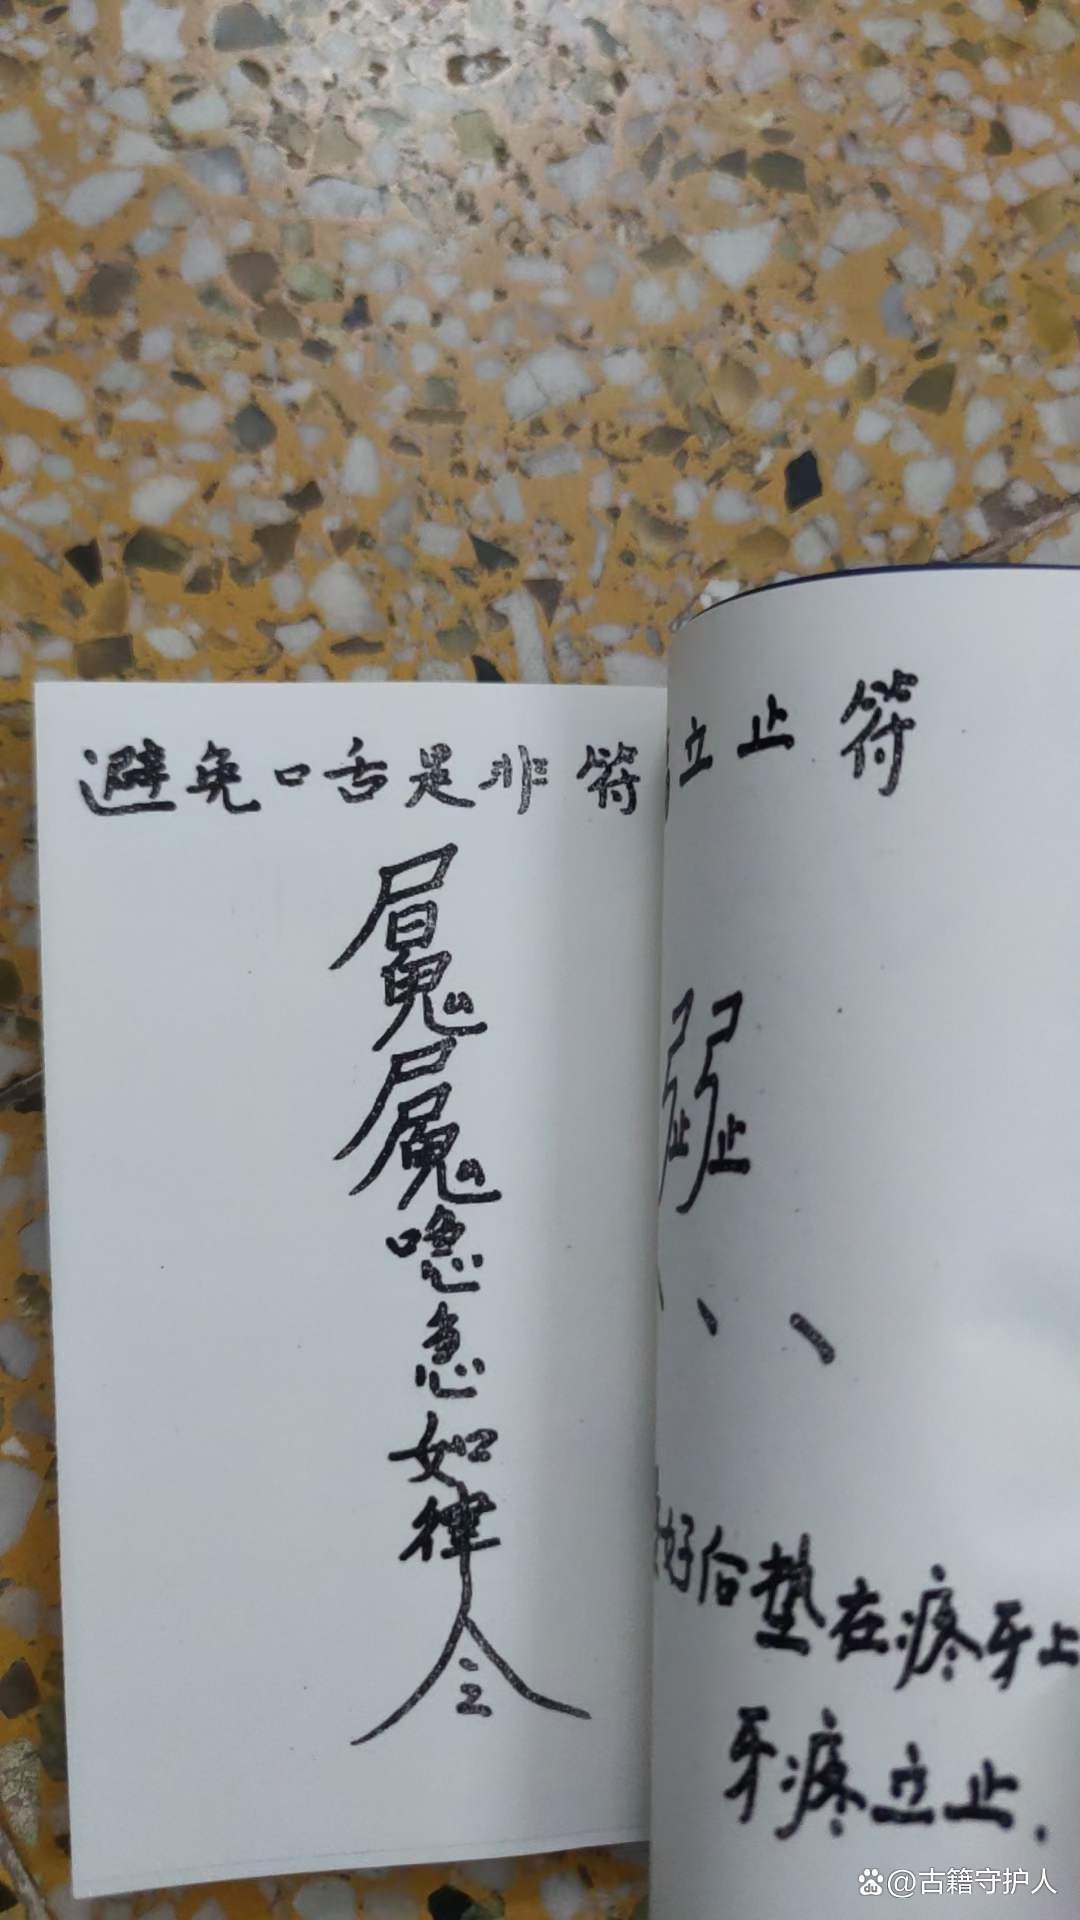 避免口舌是非符
唵
急
如
律
令
立止符
好后垫在疼牙上
牙疼立止.
@古籍守护人